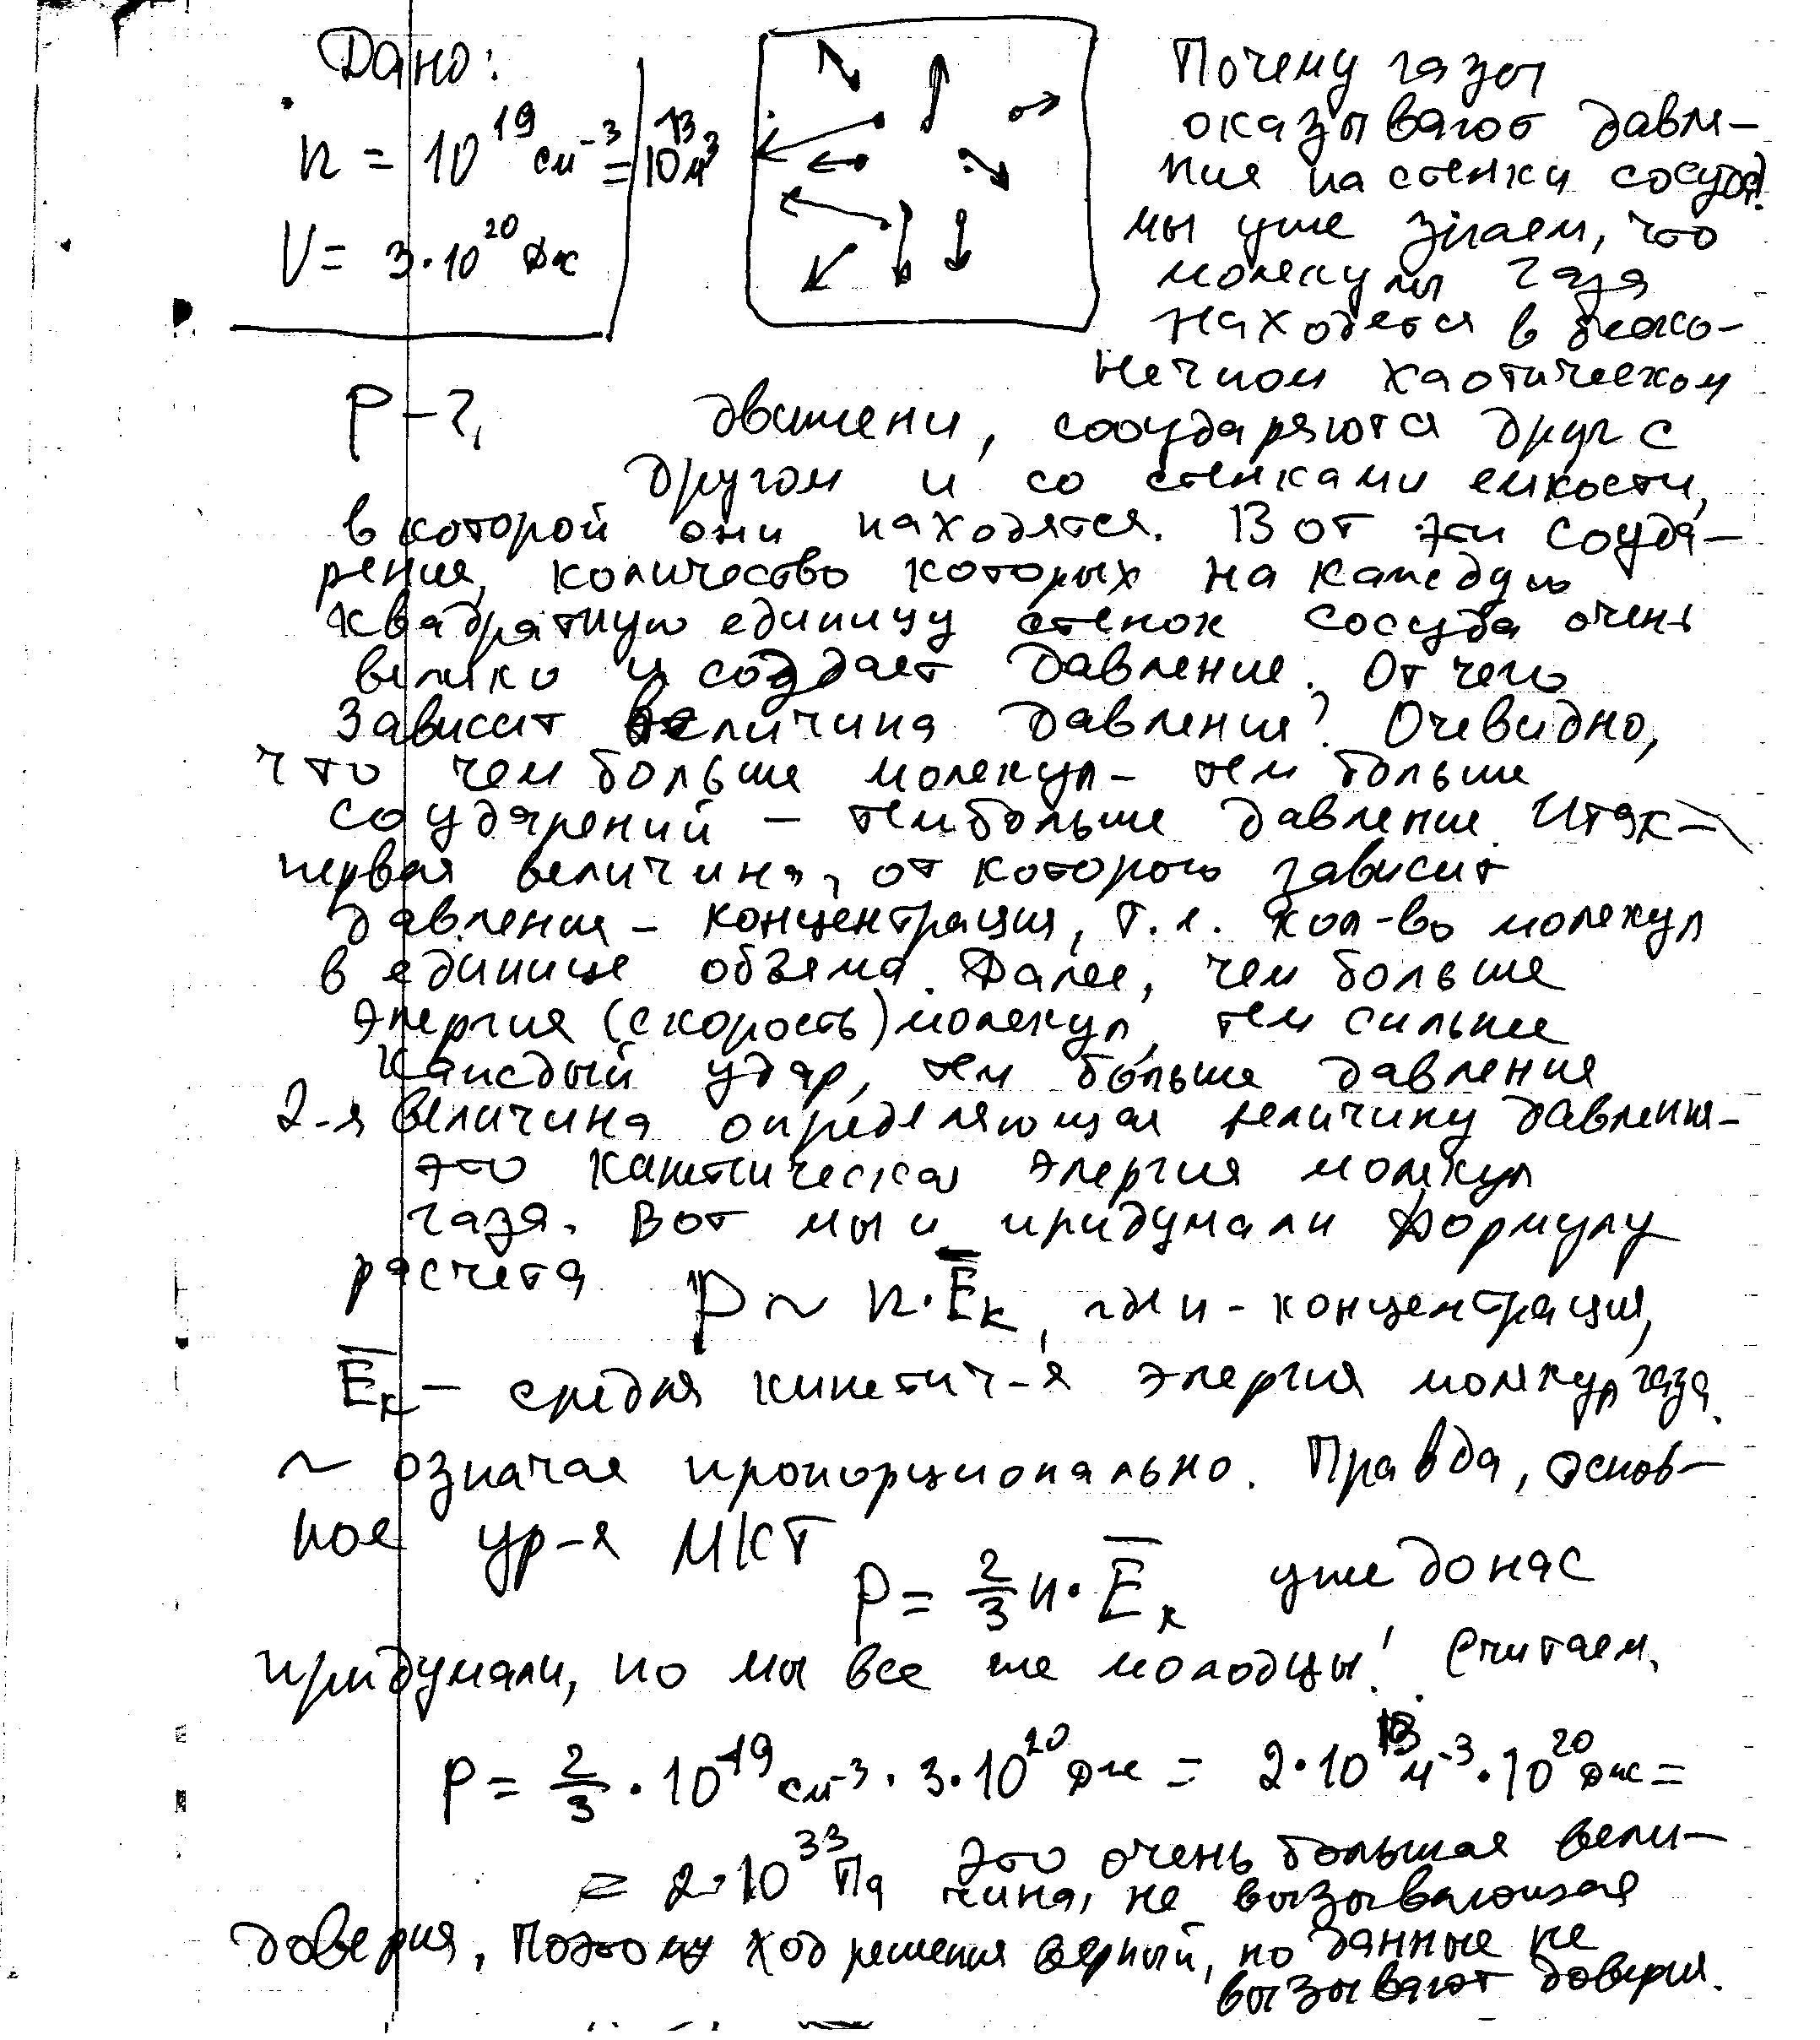 Дано:
n = 10^19 см^-3 = 10^13 м^3
V = 3·10^20 Дж
P – ?
Почему газы
оказывают давле-
ния на стенки сосуда?
мы уже знаем, что
молекулы газа
находятся в беско-
нечном хаотическом
движени, соударяются друг с
другом и со стенками емкости,
в которой они находятся. Вот эти соуда-
рения, количество которых на каждую
квадратную единицу стенок сосуда очень
велико и создает давление. От чего
зависит величина давления? Очевидно,
что чем больше молекул – тем больше
соударений – тем больше давление. Итак –
первая величина, от которого зависит
давления – концентрация, т.е. кол-во молекул
в единице объема. Далее, чем больше
энергия (скорость) молекул, тем сильнее
каждый удар, тем больше давления
2-я величина определяющая величину давления-
это кинетическая энергия молекул
газа. Вот мы и придумали формулу
расчета P ~ n·E̅к, где n - концентрация,
E̅к – средня кинетич-я энергия молекул газа.
~ означает пропорционально. Правда, основ-
ное ур-я МКТ P = 2/3 n·E̅к уже до нас
придумали, но мы все же молодцы! Считаем.
P = 2/3 · 10^-19 см^-3 · 3·10^20 Дж = 2·10^13 м^-3 · 10^20 Дж =
= 2·10^33 Па Это очень большая вели-
чина, не вызывающая
доверия, поэтому ход решения верный, но данные не
вызывают доверия.